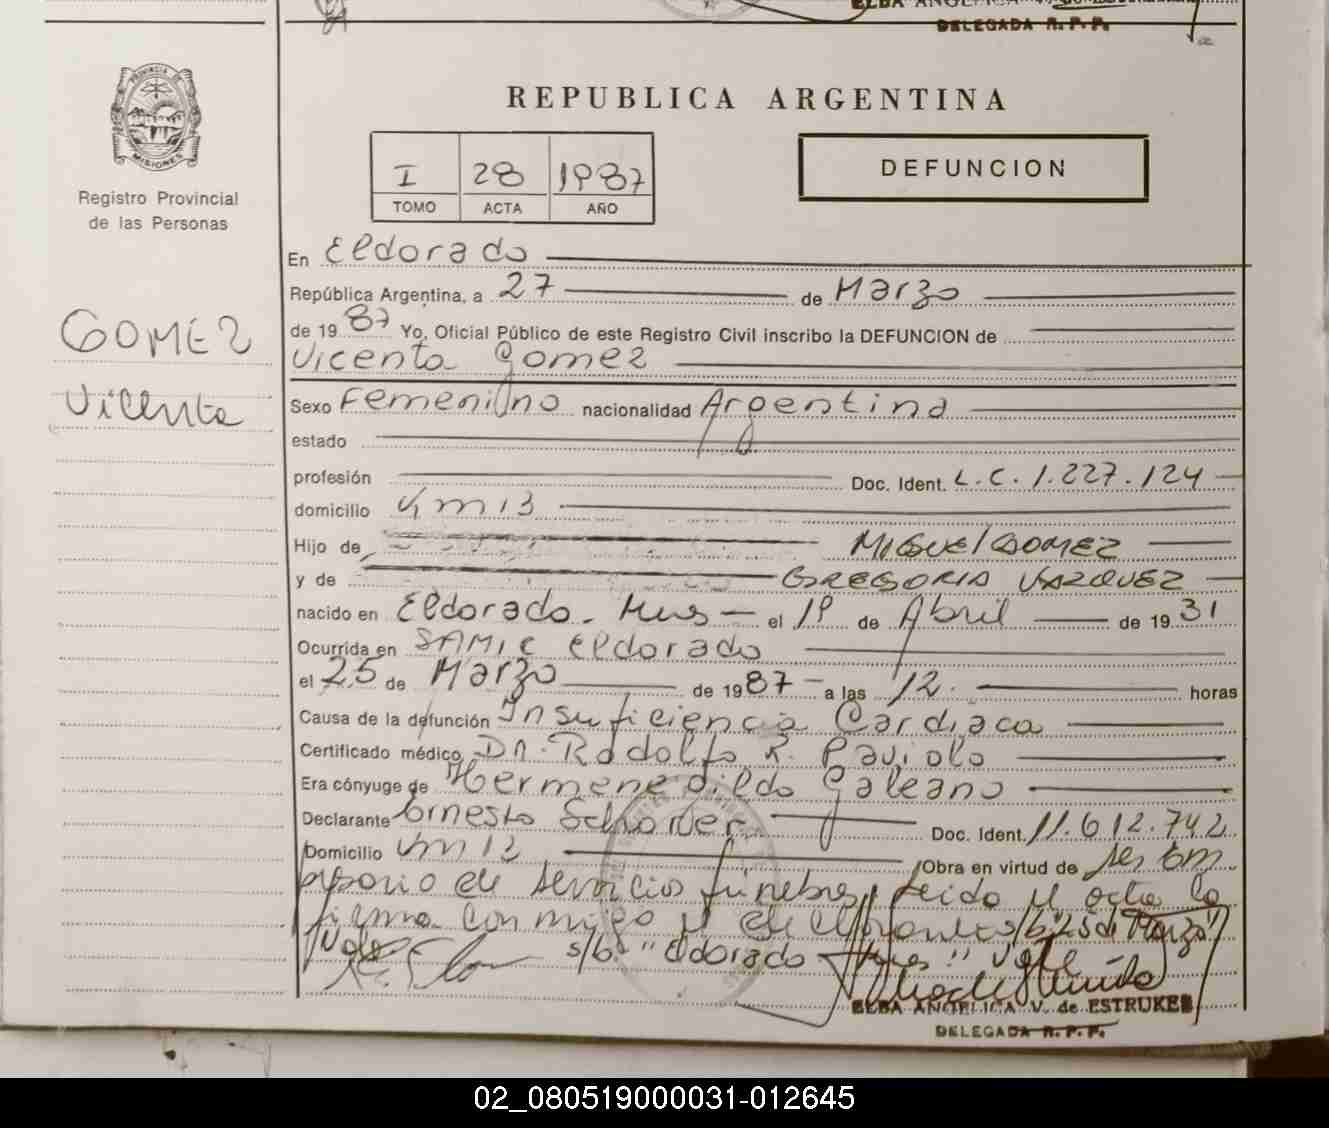 ELBA ANGELICA V. de ESTRUKES
DELEGADA R.P.P.
PROVINCIA DE MISIONES
Registro Provincial
de las Personas
GOMEZ
Vicenta
REPUBLICA ARGENTINA
I 28 1987
TOMO ACTA AÑO
DEFUNCION
En Eldorado
República Argentina, a 27 de Marzo
de 1987 Yo, Oficial Público de este Registro Civil inscribo la DEFUNCION de
Vicenta Gomez
Sexo Femenino nacionalidad Argentina
estado
profesión Doc. Ident. L.C. 1.227.124
domicilio Km 13
Hijo de MIGUEL GOMEZ
y de GREGORIA VAZQUEZ
nacido en Eldorado - Mnes - el 19 de Abril de 1931
Ocurrida en SAMIC Eldorado
el 25 de Marzo de 1987 - a las 12. horas
Causa de la defunción Insuficiencia Cardiaca
Certificado médico Dr. Rodolfo R. Paviolo
Era cónyuge de Hermenegildo Galeano
Declarante Ernesto Doc. Ident. 11.612.742
Domicilio Km 12 Obra en virtud de ser em
de servicios fúnebres, leida el acta la
firma conmigo el s/b "25 de Marzo"
Vale s/b "Eldorado Mnes" Vale -
ELBA ANGELICA V. de ESTRUKES
DELEGADA R.P.P.
02_080519000031-012645